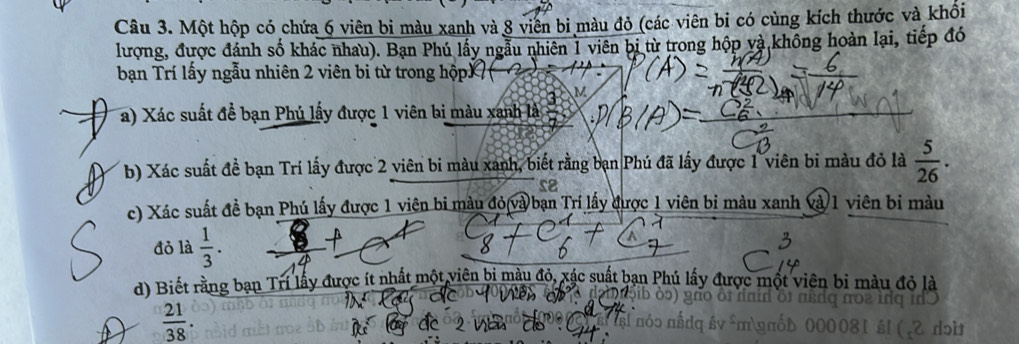 Câu 3. Một hộp có chứa 6 viên bi màu xanh và 8 viên bi màu đỏ (các viên bi có cùng kích thước và khối
lượng, được đánh số khác nhau). Bạn Phú lấy ngẫu nhiên 1 viên bi từ trong hộp và không hoàn lại, tiếp đó
bạn Trí lấy ngẫu nhiên 2 viên bi từ trong hộp. P(A) = n(A) = 6/14
M
Đ a) Xác suất để bạn Phú lấy được 1 viên bi màu xanh là 3/7. P(B/A) = C²₆ / C²₁₃
Đ b) Xác suất để bạn Trí lấy được 2 viên bi màu xanh, biết rằng bạn Phú đã lấy được 1 viên bi màu đỏ là 5/26.
c) Xác suất để bạn Phú lấy được 1 viên bi màu đỏ và bạn Trí lấy được 1 viên bi màu xanh và 1 viên bi màu
S đỏ là 1/3. 8/14 + C¹₈ + C¹₆ + C¹₇
C³₁₄
d) Biết rằng bạn Trí lấy được ít nhất một viên bi màu đỏ, xác suất bạn Phú lấy được một viên bi màu đỏ là
Đ 21/38.
lấy đc 2 viên đỏ